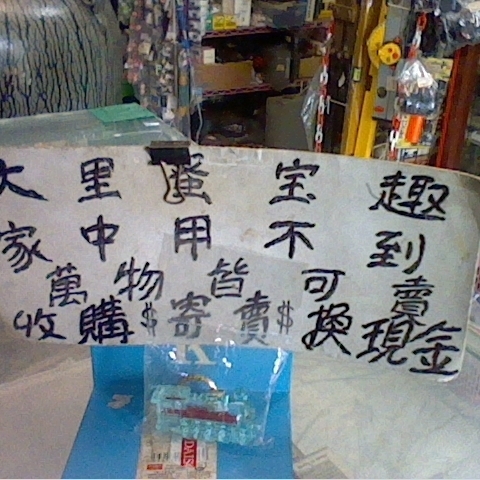 大里蚤宝趣
家中用不到
萬物皆可賣
收購$寄賣$換現金
DAIS